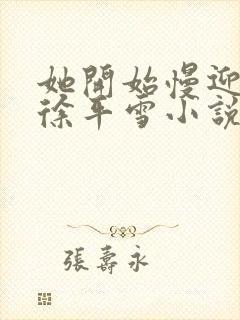 她開始慢迎
徐平雪小說
張壽永